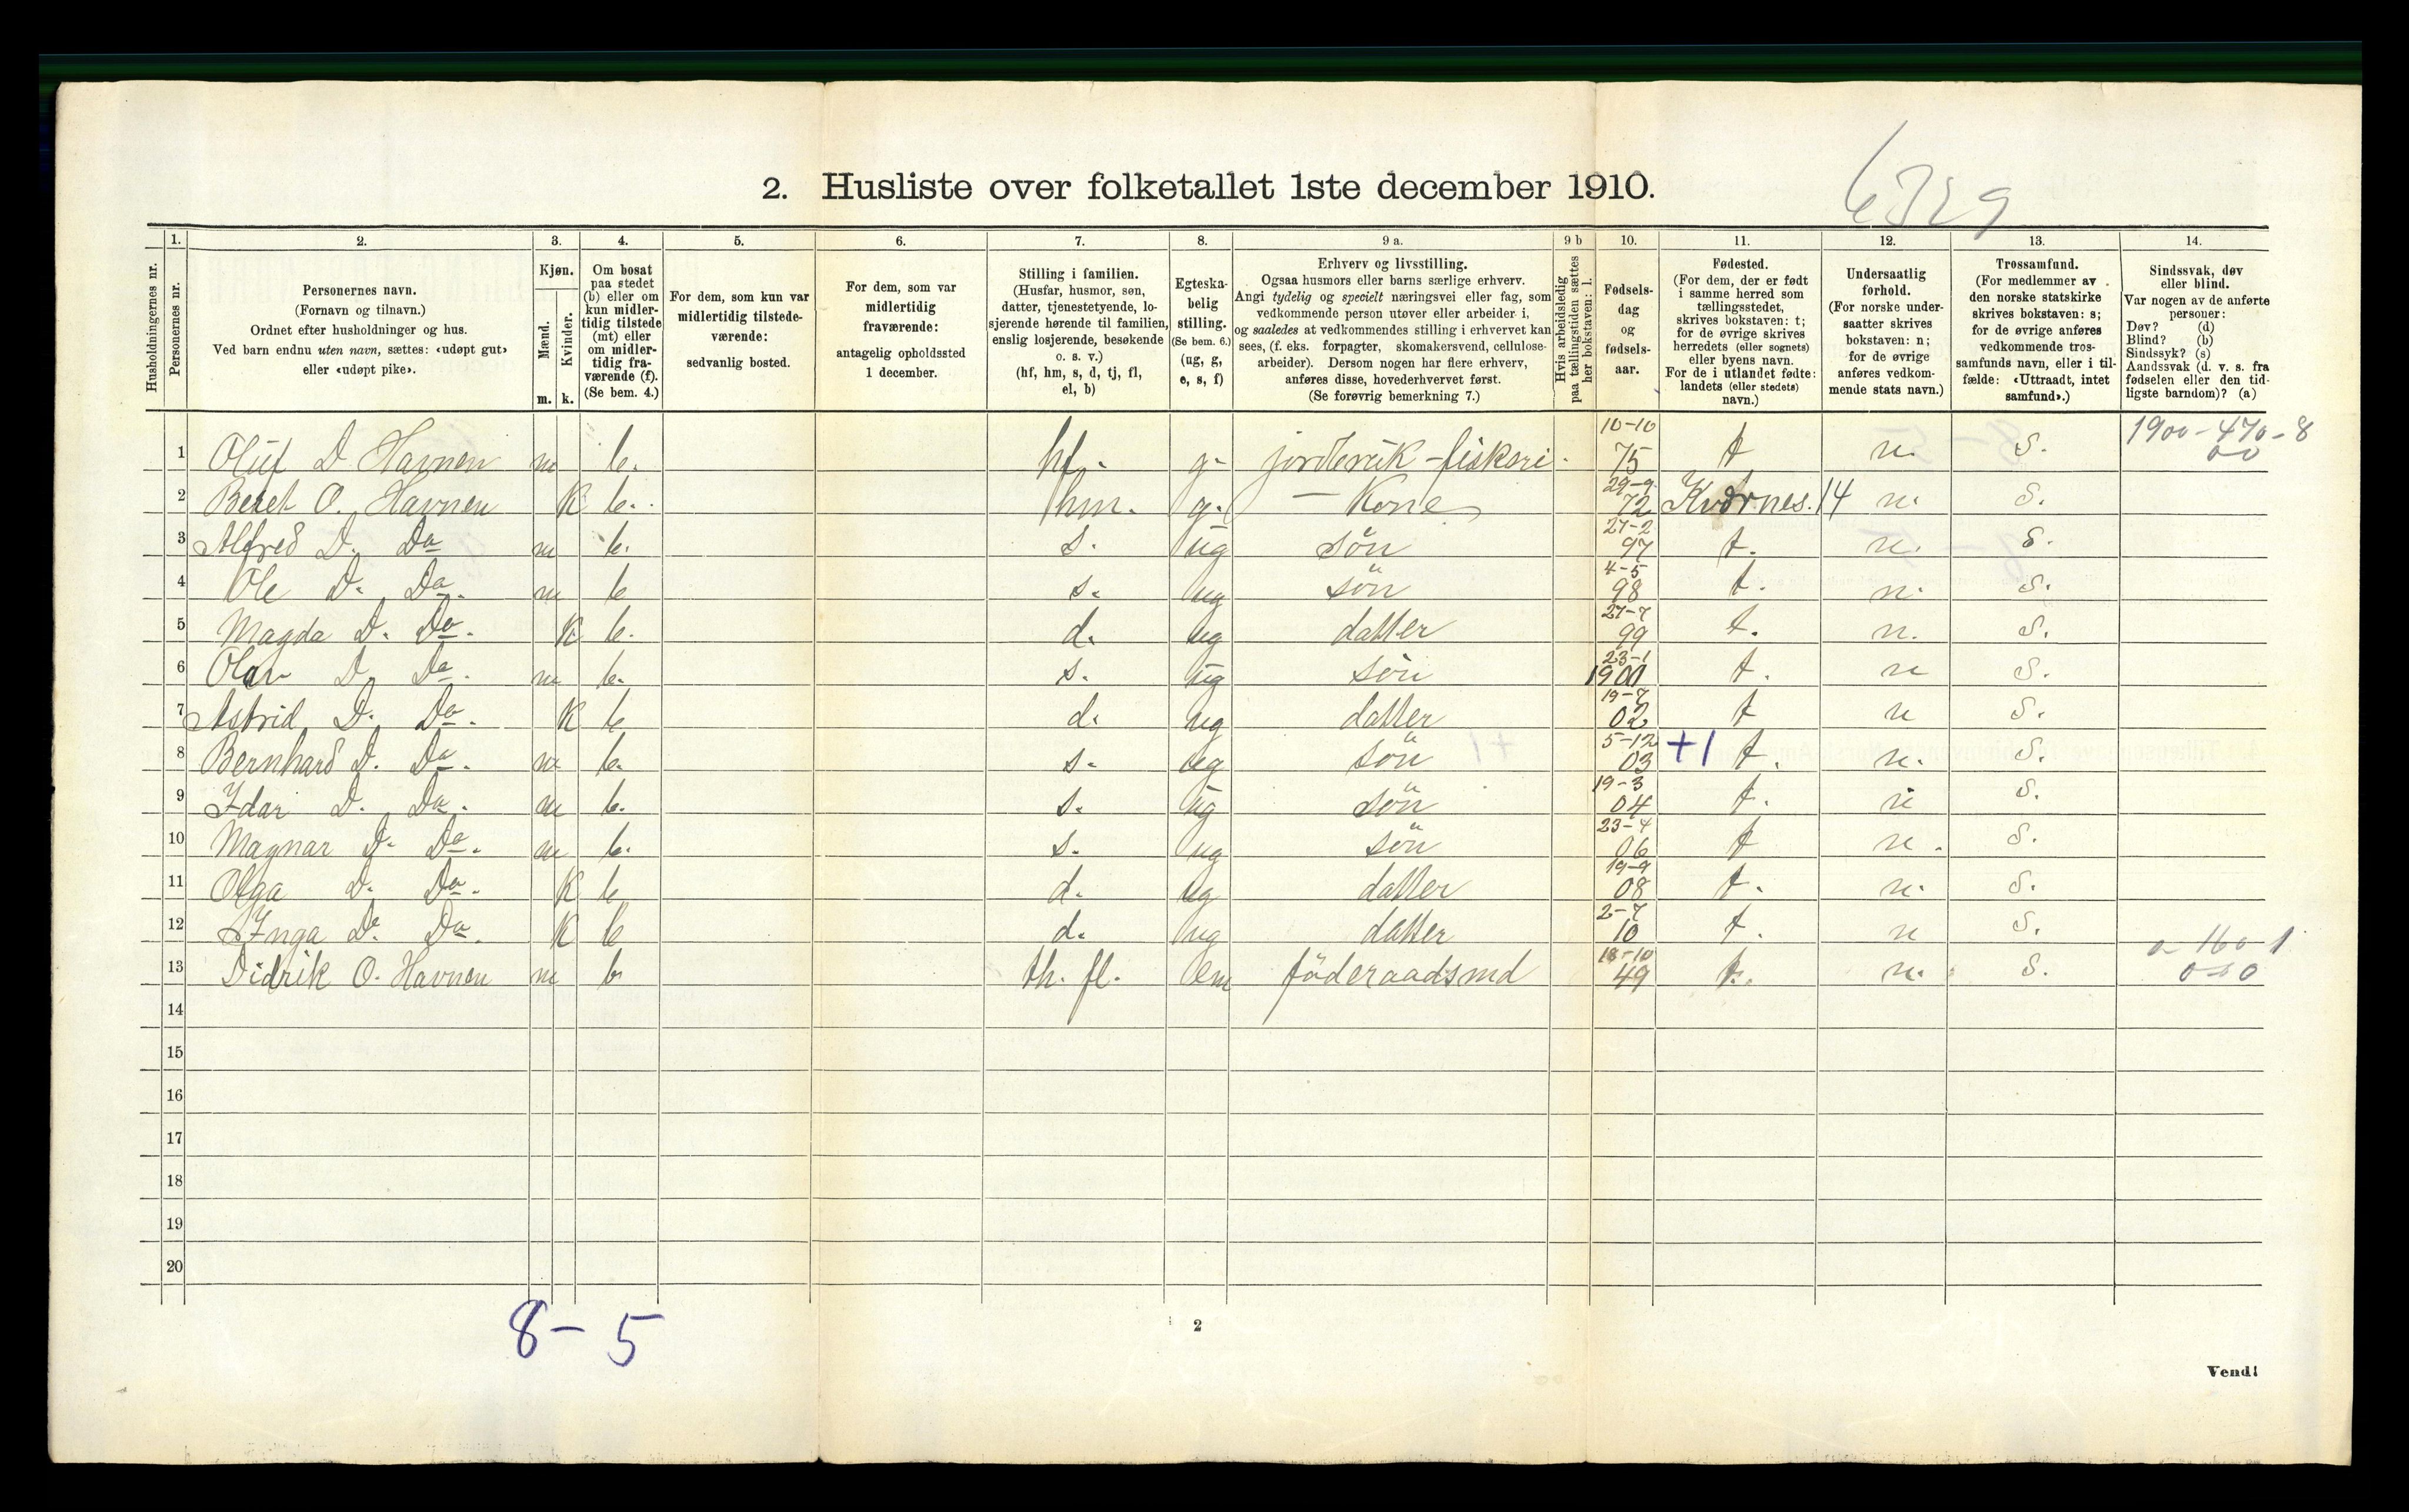 2. Husliste over folketallet 1ste december 1910.
6329
Husholdningernes nr.
1.
Personernes nr.
2.
Personernes navn.
(Fornavn og tilnavn.)
Ordnet efter husholdninger og hus.
Ved barn endnu uten navn, sættes: «udøpt gut»
eller «udøpt pike».
3.
Kjøn.
Mænd.
Kvinder.
m. k.
4.
Om bosat
paa stedet
(b) eller om
kun midler-
tidig tilstede
(mt) eller
om midler-
tidig fra-
værende (f).
(Se bem. 4.)
5.
For dem, som kun var
midlertidig tilstede-
værende:
sedvanlig bosted.
6.
For dem, som var
midlertidig
fraværende:
antagelig opholdssted
1 december.
7.
Stilling i familien.
(Husfar, husmor, søn,
datter, tjenestetyende, lo-
sjerende hørende til familien,
enslig losjerende, besøkende
o. s. v.)
(hf, hm, s, d, tj, fl,
el, b)
8.
Egteska-
belig
stilling.
(Se bem. 6.)
(ug, g,
e, s, f)
9 a.
Erhverv og livsstilling.
Ogsaa husmors eller barns særlige erhverv.
Angi tydelig og specielt næringsvei eller fag, som
vedkommende person utøver eller arbeider i,
og saaledes at vedkommendes stilling i erhvervet kan
sees, (f. eks. forpagter, skomakersvend, cellulose-
arbeider). Dersom nogen har flere erhverv,
anføres disse, hovederhvervet først.
(Se forøvrig bemerkning 7.)
9 b
Hvis arbeidsledig
paa tællingstiden sættes
her bokstaven: l.
10.
Fødsels-
dag
og
fødsels-
aar.
11.
Fødested.
(For dem, der er født
i samme herred som
tællingsstedet,
skrives bokstaven: t;
for de øvrige skrives
herredets (eller sognets)
eller byens navn.
For de i utlandet fødte:
landets (eller stedets)
navn.)
12.
Undersaatlig
forhold.
(For norske under-
saatter skrives
bokstaven: n;
for de øvrige
anføres vedkom-
mende stats navn.)
13.
Trossamfund.
(For medlemmer av
den norske statskirke
skrives bokstaven: s;
for de øvrige anføres
vedkommende tros-
samfunds navn, eller i til-
fælde: «Uttraadt, intet
samfund».)
14.
Sindssvak, døv
eller blind.
Var nogen av de anførte
personer:
Døv? (d)
Blind? (b)
Sindssyk? (s)
Aandssvak (d. v. s. fra
fødselen eller den tid-
ligste barndom)? (a)
1 Oluf D Havnen m b. hf. g. jordbruk - fiskeri. 10-10 75 t n. S. 1900-470-8
0-0
2 Beret O. Havnen K b. hm. g. - Kone 29-9 72 Kvernes. 14 n. S.
3 Alfred D. Do m b. s. ug sön 27-2 97 t. n. S.
4 Ole D. Do. m b s. ug sön 4-5 98 t. n. S.
5 Magda D. Do. K b. d. ug datter 27-7 99 t. n. S.
6 Olav D. Do. m b. s. ug sön 23-1 1901 t. n S.
7 Astrid D. Do. K b d. ug datter 19-7 02 t n S.
8 Bernhard D. Do. m b. s. ug sön 5-12 03 +1 t. n. S.
9 Idar D. Do. m b. s. ug sön 19-3 04 t. n S.
10 Magnar D. Do. m b. s. ug sön 23-4 06 t n. S.
11 Olga D. Do. K b d. ug datter 19-9 08 t. n. S.
12 Inga D. Do. K b d. ug datter 2-7 10 t. n S.
13 Didrik O. Havnen m b. th. fl. em föderaadsmd 18-10 49 t. n. S. 0-160-1
0-0
14
15
16
17
18
19
20
8-5
2
Vend!